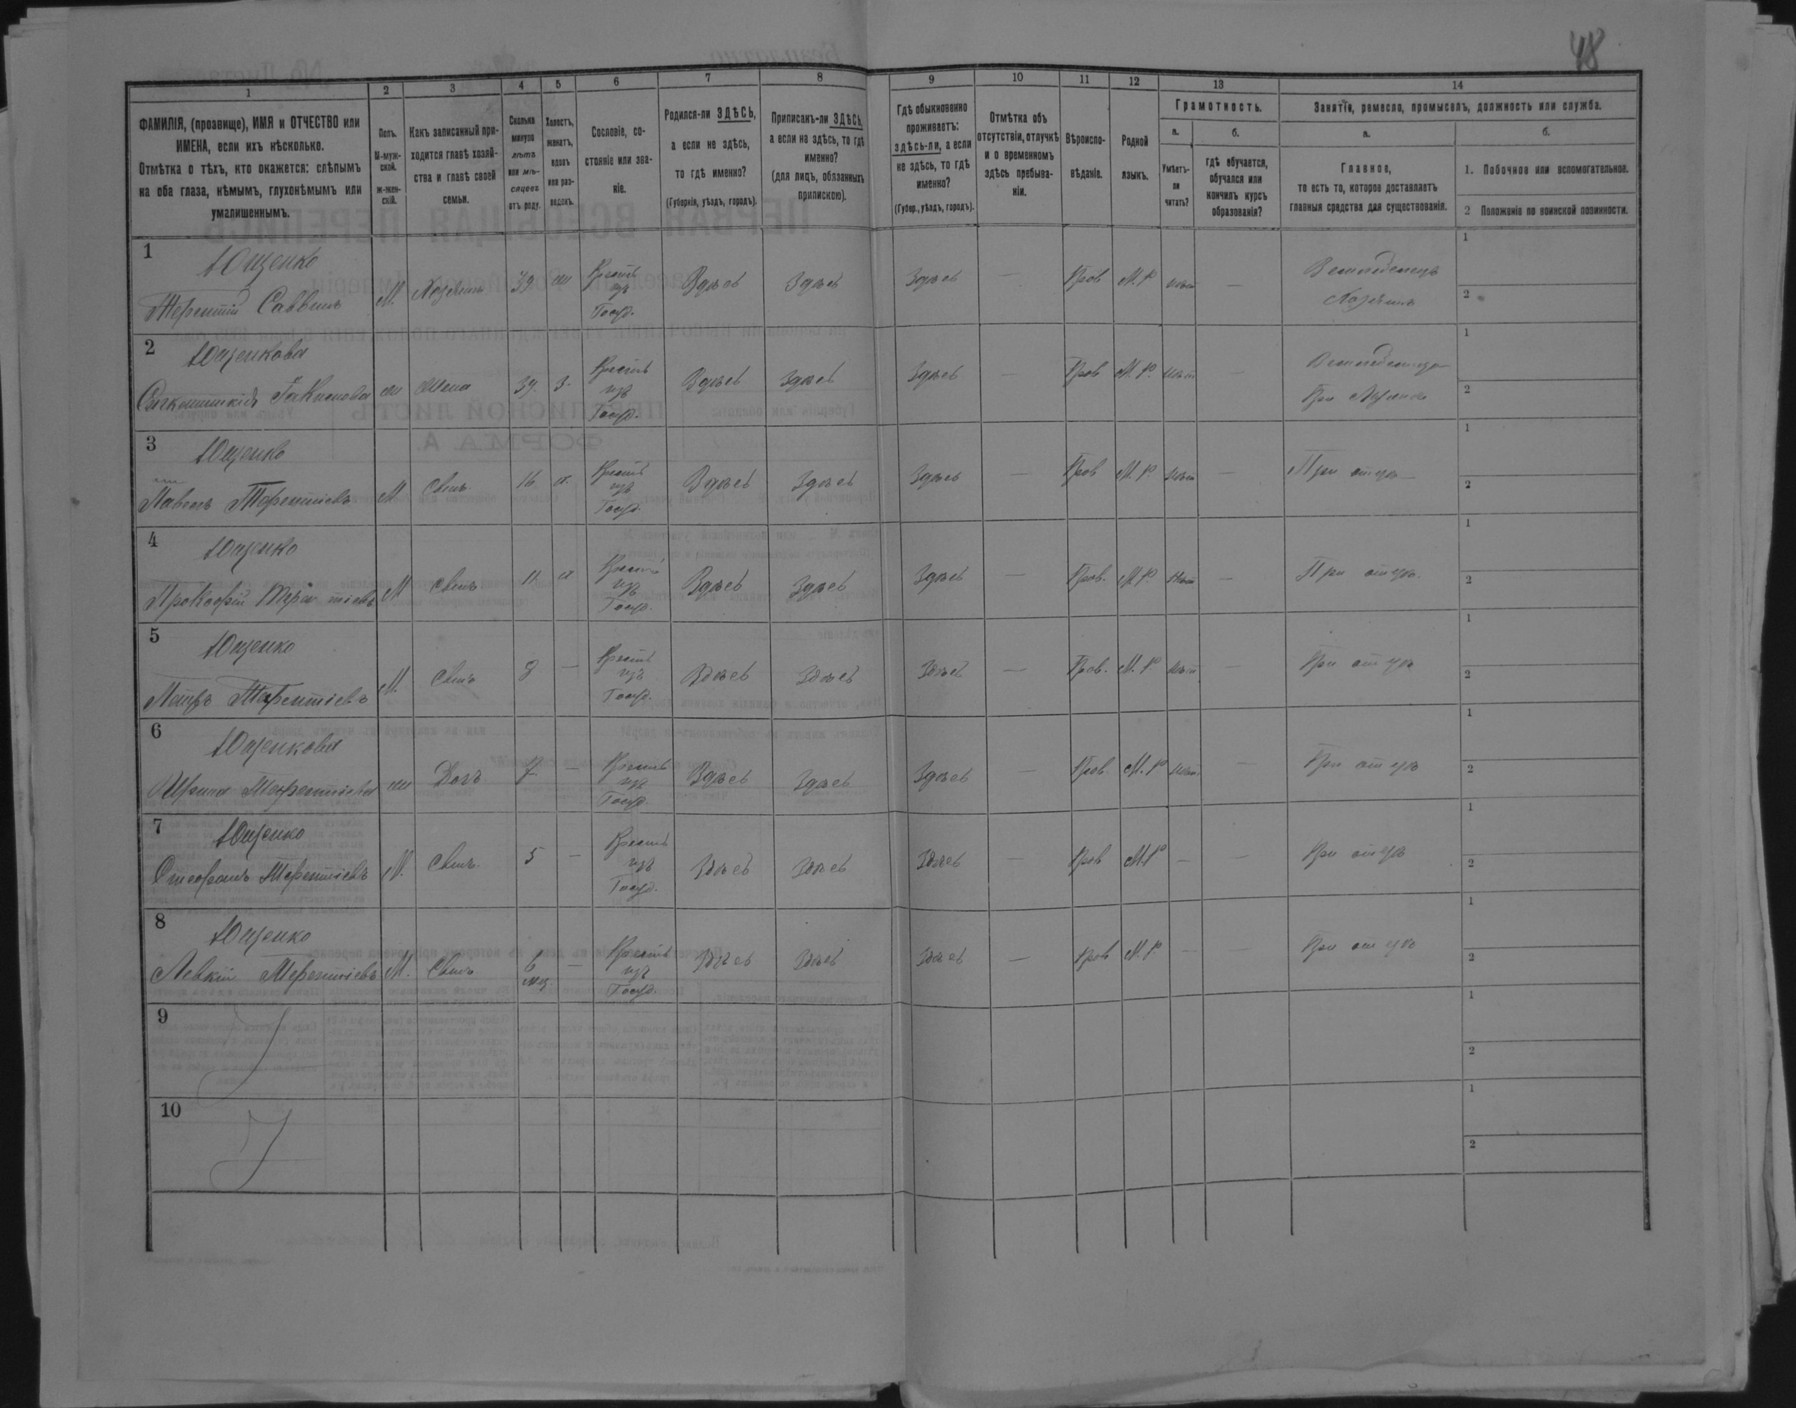 48
1
2
3
4
5
6
7
8
9
10
11
12
13
14
ФАМИЛІЯ, (прозвище), ИМЯ и ОТЧЕСТВО или
ИМЕНА, если ихъ нѣсколько.
Отмѣтка о тѣхъ, кто окажется: слѣпымъ
на оба глаза, нѣмымъ, глухонѣмымъ или
умалишеннымъ.
Полъ.
М-муж-
ской.
ж-жен-
скій.
Какъ записанный при-
ходится главѣ хозяй-
ства и главѣ своей
семьи.
Сколько
минуло
лѣтъ
или мѣ-
сяцевъ
отъ роду.
Холостъ,
женатъ,
вдовъ
или раз-
веденъ.
Сословіе, со-
стояніе или зва-
ніе.
Родился-ли ЗДѢСЬ,
а если не здѣсь,
то гдѣ именно?
(Губернія, уѣздъ, городъ).
Приписанъ-ли ЗДѢСЬ,
а если не здѣсь, то гдѣ
именно?
(для лицъ, обязанныхъ
припиской).
Гдѣ обыкновенно
проживаетъ:
здѣсь-ли, а если
не здѣсь, то гдѣ
именно?
(Губер., уѣздъ, городъ).
Отмѣтка объ
отсутствіи, отлучкѣ
и о временномъ
здѣсь пребыва-
ніи.
Вѣроиспо-
вѣданіе.
Родной
языкъ.
Грамотность.
а.
Умѣетъ-
ли
читать?
б.
гдѣ обучается,
обучался или
кончилъ курсъ
образованія?
Занятіе, ремесло, промыселъ, должность или служба.
а.
Главное,
то есть то, которое доставляетъ
главныя средства для существованія.
б.
1. Побочное или вспомогательное.
2 Положеніе по воинской повинности.
1
Ющенко
Терентій Саввинъ М. Хозяинъ 39 Крестъ изъ Госуд. Здѣсь Здѣсь Здѣсь — Прав М.Р нѣт — Земледѣлецъ Хозяинъ
1
2
2
Ющенкова
Жена 39 З. Крестъ изъ Госуд. Здѣсь Здѣсь Здѣсь — Прав М.Р. нѣт — При Мужѣ
1
2
3
Ющенко
Павелъ Терентіевъ М Сынъ 16 Крестъ изъ Госуд. Здѣсь Здѣсь Здѣсь — Прав М.Р. нѣт — При отцѣ
1
2
4
Ющенко
Прокофій Терентіевъ М Сынъ 11 Крестъ изъ Госуд. Здѣсь Здѣсь Здѣсь — Прав. М.Р нѣт — При отцѣ.
1
2
5
Ющенко
Петръ Терентіевъ М. Сынъ — Крестъ изъ Госуд. Здѣсь Здѣсь Здѣсь — Прав. М.Р нѣт — При отцѣ
1
2
6
Ющенкова
Терентіева Дочь 7 — Крестъ изъ Госуд. Здѣсь Здѣсь Здѣсь — Прав. М.Р нѣт. — При отцѣ
1
2
7
Ющенко
Стефанъ Терентіевъ М. Сынъ 5 — Крестъ изъ Госуд. Здѣсь Здѣсь Здѣсь — Прав М.Р — — При отцѣ
1
2
8
Ющенко
Левкій Терентіевъ М. Сынъ 6 мѣс — Крестъ изъ Госуд. Здѣсь Здѣсь Здѣсь — Прав М.Р — — При отцѣ
1
2
9
1
2
10
1
2